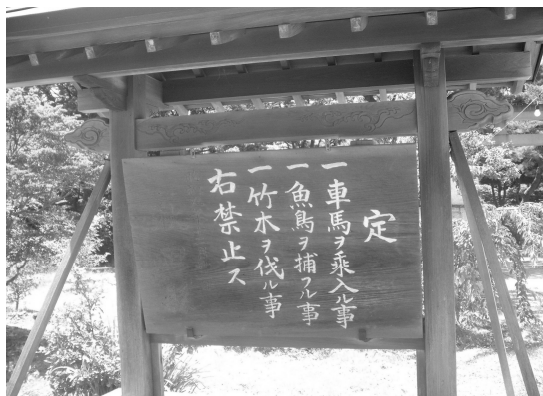 定
一車馬ヲ乗入ル事
一魚鳥ヲ捕フル事
一竹木ヲ伐ル事
右禁止ス